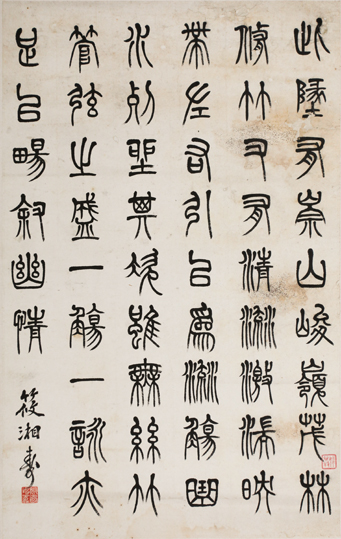 此墬有崇山峻嶺茂林
脩竹又有清流激湍映
帶左右引以為流觴曲
水列坐其次雖無絲竹
管弦之盛一觴一詠亦
足以暢敘幽情
筱湘壽